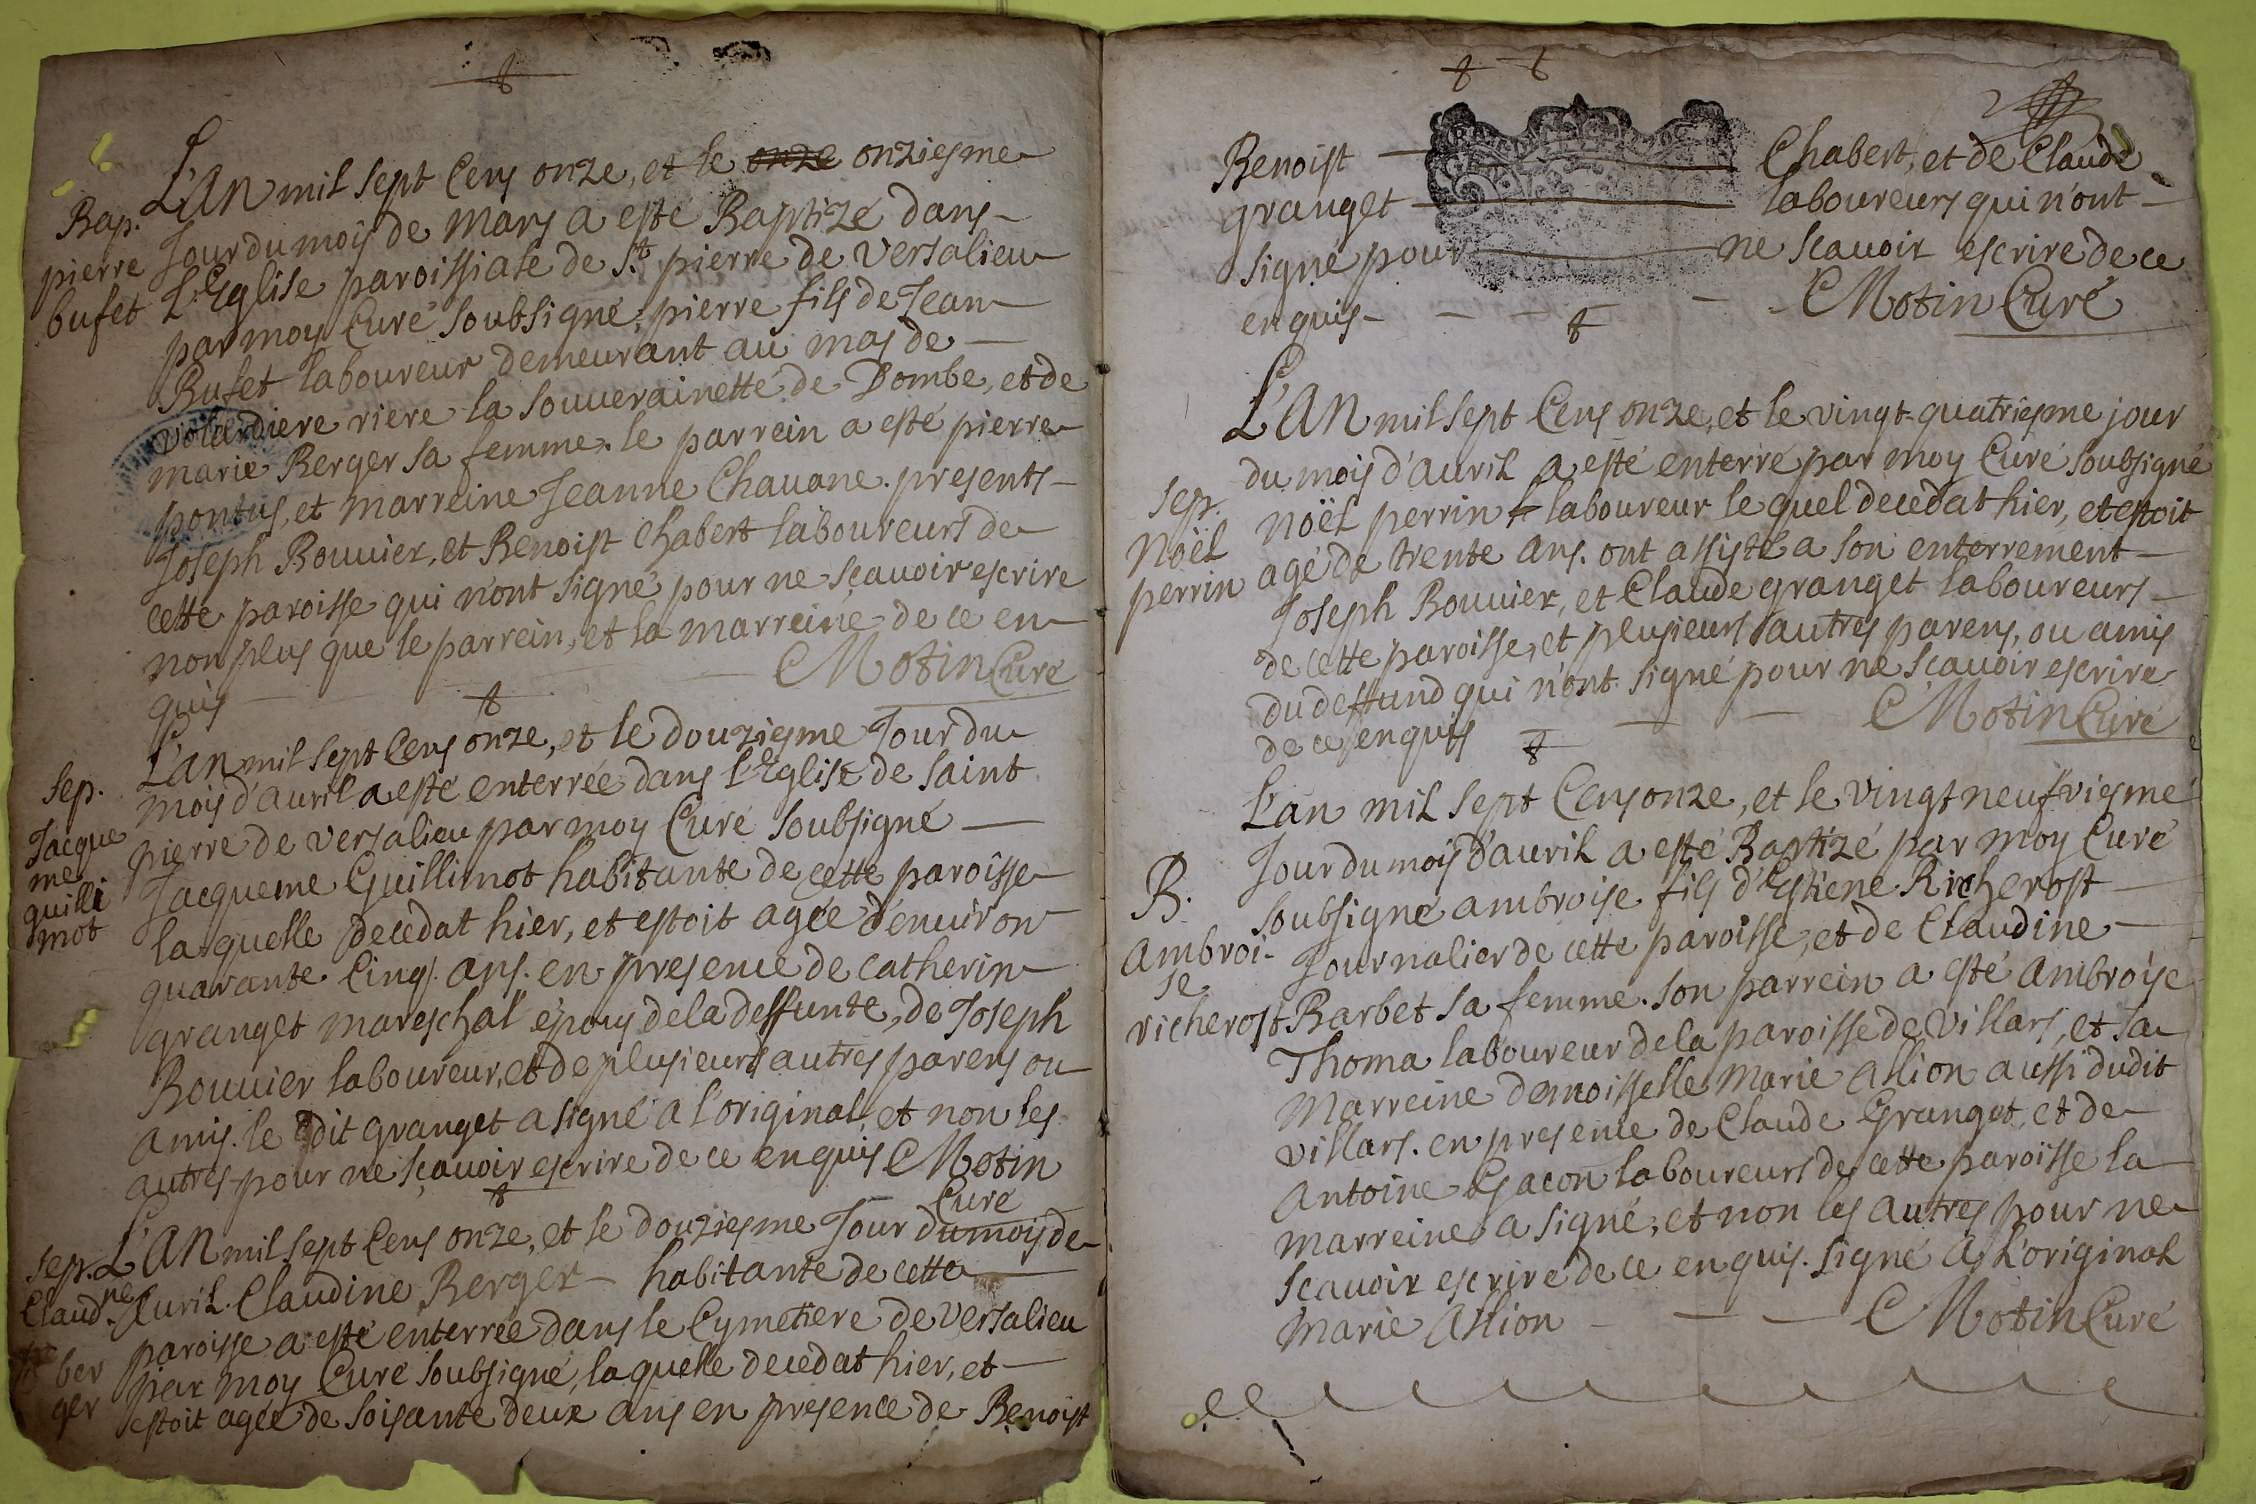 L'AN mil sept Cens onze, et le onze onziesme
Bap. Jour du mois de Mars a esté Baptizé dans
pierre L'Eglise paroissiale de St. pierre de Versalieu
bufet par moy Curé soubsigné, pierre fils de Jean
Bufet laboureur demeurant au mas de
volardiere riere la souverainetté de Dombe, et de
marie Berger sa femme. le parrein a esté pierre
pontus, et marreine Jeanne Chavane. presents
Joseph Bouvier, et Benoist Chabert laboureurs de
cette paroisse qui n'ont signé pour ne sçavoir escrire
non plus que le parrein, et la marreine de ce en
quis
Motin Curé
L'an mil sept Cens onze, et le douziesme Jour du
sep. mois d'auril a esté enterrée dans l'Eglise de saint
Jacque pierre de versalieu par moy Curé soubsigné
me Jacqueme Guillimot habitante de cette paroisse
guilli laquelle decedat hier, et estoit agée d'environ
mot quarante Cinq ans. en presence de catherin
granget mareschal époux de la deffunte, de Joseph
Bouvier laboureur, et de plusieurs autres parens ou
amis. le dit granget a signé a l'original, et non les
autres pour ne sçavoir escrire de ce enquis Motin
Curé
sep. L'AN mil sept Cens onze, et le douziesme Jour du mois de
Claud.ne Auril. Claudine Berger habitante de cette
paroisse a esté enterrée dans le Cymetiere de Versalieu
ber par moy Curé soubsigné, laquelle decedat hier, et
ger estoit agée de soisante deux ans en presence de Benoist
Benoist Chabert, et de Claude
granget laboureurs qui n'ont
signé pour ne scavoir escrire de ce
enquis
Motin Curé
L'AN mil sept Cens onze, et le vingt-quatriesme jour
du mois d'auril a esté enterré par moy Curé soubsigné
sep. Noël perrin laboureur le quel decedat hier, et estoit
Noël agé de trente ans. ont assisté a son enterrement
perrin Joseph Bouvier, et Claude granget laboureurs
de cette paroisse, et plusieurs autres parens, ou amis
du deffund qui n'ont signé pour ne scavoir escrire
de ce enquis
Motin Curé
L'an mil sept Cens onze, et le vingt neufviesme
Jour du mois d'auril a esté Baptizé par moy Curé
B. soubsigné ambroise fils d'Estiene Richerost
Ambroi- Journalier de cette paroisse, et de Claudine
se
richerost Barbet sa femme. son parrein a esté ambroise
Thoma laboureur de la paroisse de Villars, et sa
Marreine demoisselle Marie Allion aussi dudit
villars. en presence de Claude Granget, et de
Antoine Gacon laboureurs de cette paroisse la
marreine a signé, et non les autres pour ne
scavoir escrire de ce enquis. signé a L'original
Marie Allion
Motin Curé